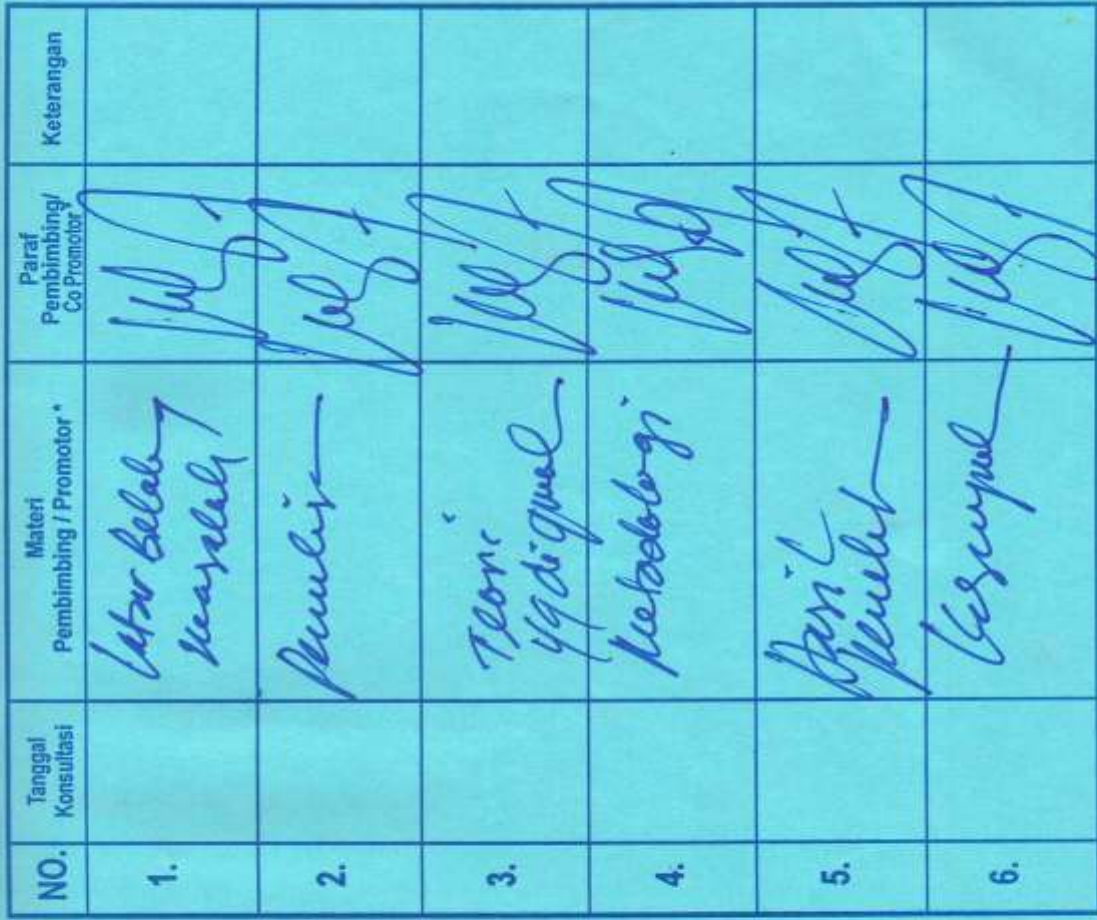 NO.
Tanggal
Konsultasi
Materi
Pembimbing / Promotor*
Paraf
Pembimbing/
Co Promotor*
Keterangan
1.
Latar Belakang
masalah
2.
Penulisan
3.
Teori
yg digunak
4.
Metodologi
5.
Hasil
Penelit
6.
Kesimpul